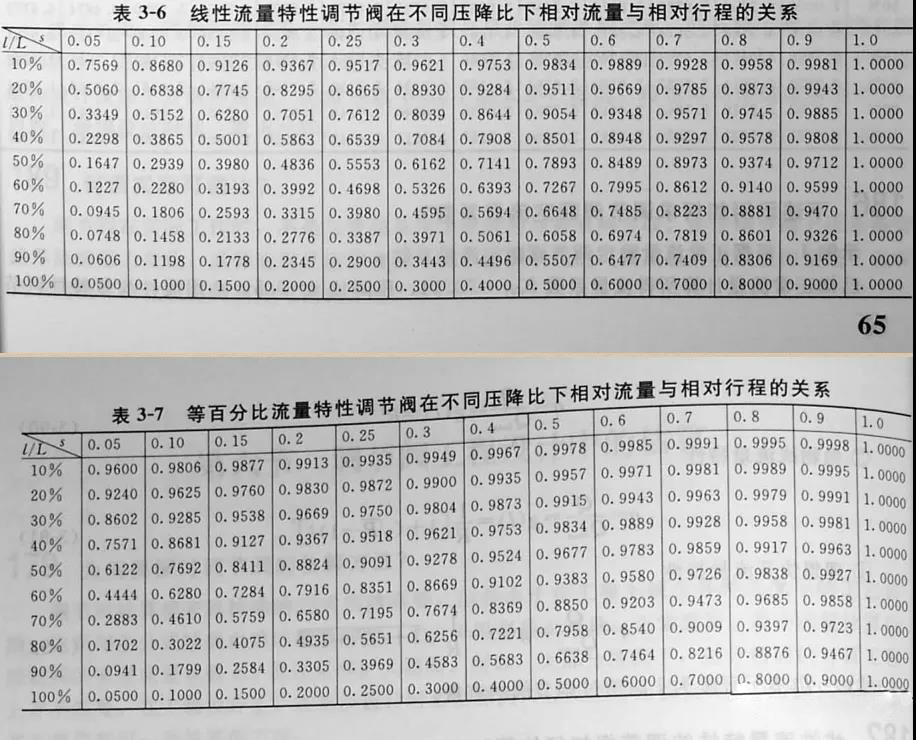 表 3-6 线性流量特性调节阀在不同压降比下相对流量与相对行程的关系
l/L s 0.05 0.10 0.15 0.2 0.25 0.3 0.4 0.5 0.6 0.7 0.8 0.9 1.0
10% 0.7569 0.8680 0.9126 0.9367 0.9517 0.9621 0.9753 0.9834 0.9889 0.9928 0.9958 0.9981 1.0000
20% 0.5060 0.6838 0.7745 0.8295 0.8665 0.8930 0.9284 0.9511 0.9669 0.9785 0.9873 0.9943 1.0000
30% 0.3349 0.5152 0.6280 0.7051 0.7612 0.8039 0.8644 0.9054 0.9348 0.9571 0.9745 0.9885 1.0000
40% 0.2298 0.3865 0.5001 0.5863 0.6539 0.7084 0.7908 0.8501 0.8948 0.9297 0.9578 0.9808 1.0000
50% 0.1647 0.2939 0.3980 0.4836 0.5553 0.6162 0.7141 0.7893 0.8489 0.8973 0.9374 0.9712 1.0000
60% 0.1227 0.2280 0.3193 0.3992 0.4698 0.5326 0.6393 0.7267 0.7995 0.8612 0.9140 0.9599 1.0000
70% 0.0945 0.1806 0.2593 0.3315 0.3980 0.4595 0.5694 0.6648 0.7485 0.8223 0.8881 0.9470 1.0000
80% 0.0748 0.1458 0.2133 0.2776 0.3387 0.3971 0.5061 0.6058 0.6974 0.7819 0.8601 0.9326 1.0000
90% 0.0606 0.1198 0.1778 0.2345 0.2900 0.3443 0.4496 0.5507 0.6477 0.7409 0.8306 0.9169 1.0000
100% 0.0500 0.1000 0.1500 0.2000 0.2500 0.3000 0.4000 0.5000 0.6000 0.7000 0.8000 0.9000 1.0000
65
表 3-7 等百分比流量特性调节阀在不同压降比下相对流量与相对行程的关系
l/L s 0.05 0.10 0.15 0.2 0.25 0.3 0.4 0.5 0.6 0.7 0.8 0.9 1.0
10% 0.9600 0.9806 0.9877 0.9913 0.9935 0.9949 0.9967 0.9978 0.9985 0.9991 0.9995 0.9998 1.0000
20% 0.9240 0.9625 0.9760 0.9830 0.9872 0.9900 0.9935 0.9957 0.9971 0.9981 0.9989 0.9995 1.0000
30% 0.8602 0.9285 0.9538 0.9669 0.9750 0.9804 0.9873 0.9915 0.9943 0.9963 0.9979 0.9991 1.0000
40% 0.7571 0.8681 0.9127 0.9367 0.9518 0.9621 0.9753 0.9834 0.9889 0.9928 0.9958 0.9981 1.0000
50% 0.6122 0.7692 0.8411 0.8824 0.9091 0.9278 0.9524 0.9677 0.9783 0.9859 0.9917 0.9963 1.0000
60% 0.4444 0.6280 0.7284 0.7916 0.8351 0.8669 0.9102 0.9383 0.9580 0.9726 0.9838 0.9927 1.0000
70% 0.2883 0.4610 0.5759 0.6580 0.7195 0.7674 0.8369 0.8850 0.9203 0.9473 0.9685 0.9858 1.0000
80% 0.1702 0.3022 0.4075 0.4935 0.5651 0.6256 0.7221 0.7958 0.8540 0.9009 0.9397 0.9723 1.0000
90% 0.0941 0.1799 0.2584 0.3305 0.3969 0.4583 0.5683 0.6638 0.7464 0.8216 0.8876 0.9467 1.0000
100% 0.0500 0.1000 0.1500 0.2000 0.2500 0.3000 0.4000 0.5000 0.6000 0.7000 0.8000 0.9000 1.0000